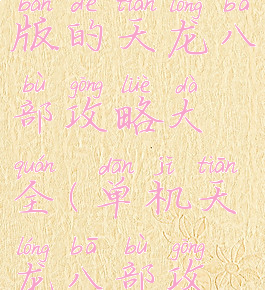 bǎn de tiān lóng bā
版的天龙八
bù gōng lüè dà
部攻略大
quán dān jī tiān
全(单机天
lóng bā bù gōng
龙八部攻